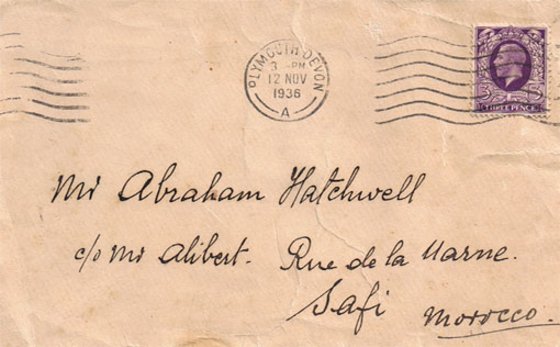 PLYMOUTH·DEVON
3 - PM
12 NOV
1936
A
3 D
THREE PENCE
Mr Abraham Hatchwell
c/o Mr Alibert. Rue de la Marne.
Safi Morocco.